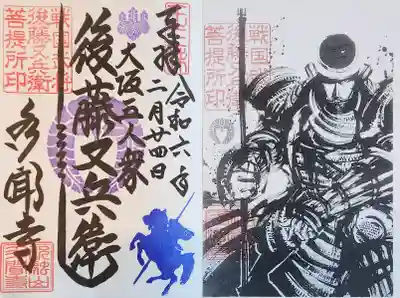 奉拝
令和六年
二月廿四日
大坂五人衆
後藤又兵衛
多聞寺
戦国武将
後藤又兵衛
菩提所印
戦国武将
後藤又兵衛
菩提所印